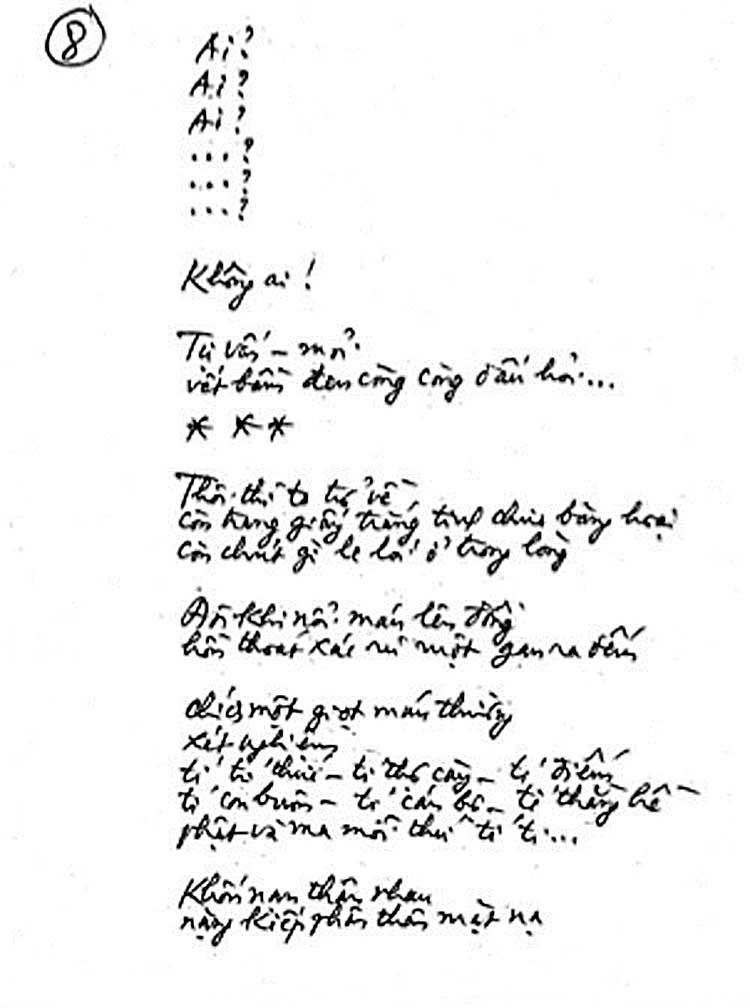 8
Ai?
Ai?
Ai?
...?
...?
...?
Không ai!
Tự vấn – mỏi
vết bầm đen còng còng dấu hỏi...
* * *
Thôi thì ta trở về
còn trang giấy trắng tinh chưa băng hoại
còn chút gì le lói ở trong lòng
Đôi khi nổi máu lên đồng
hồn thoát xác rũ ruột gan ra đếm
chích một giọt máu thường
xét nghiệm
tí trí thức – tí thợ cày – tí điếm
tí con buôn – tí cán bộ – tí thằng hề
phật và ma mỗi thứ tí ti...
Khốn nạn thân nhau
nặng kiếp phân thân mặt nạ